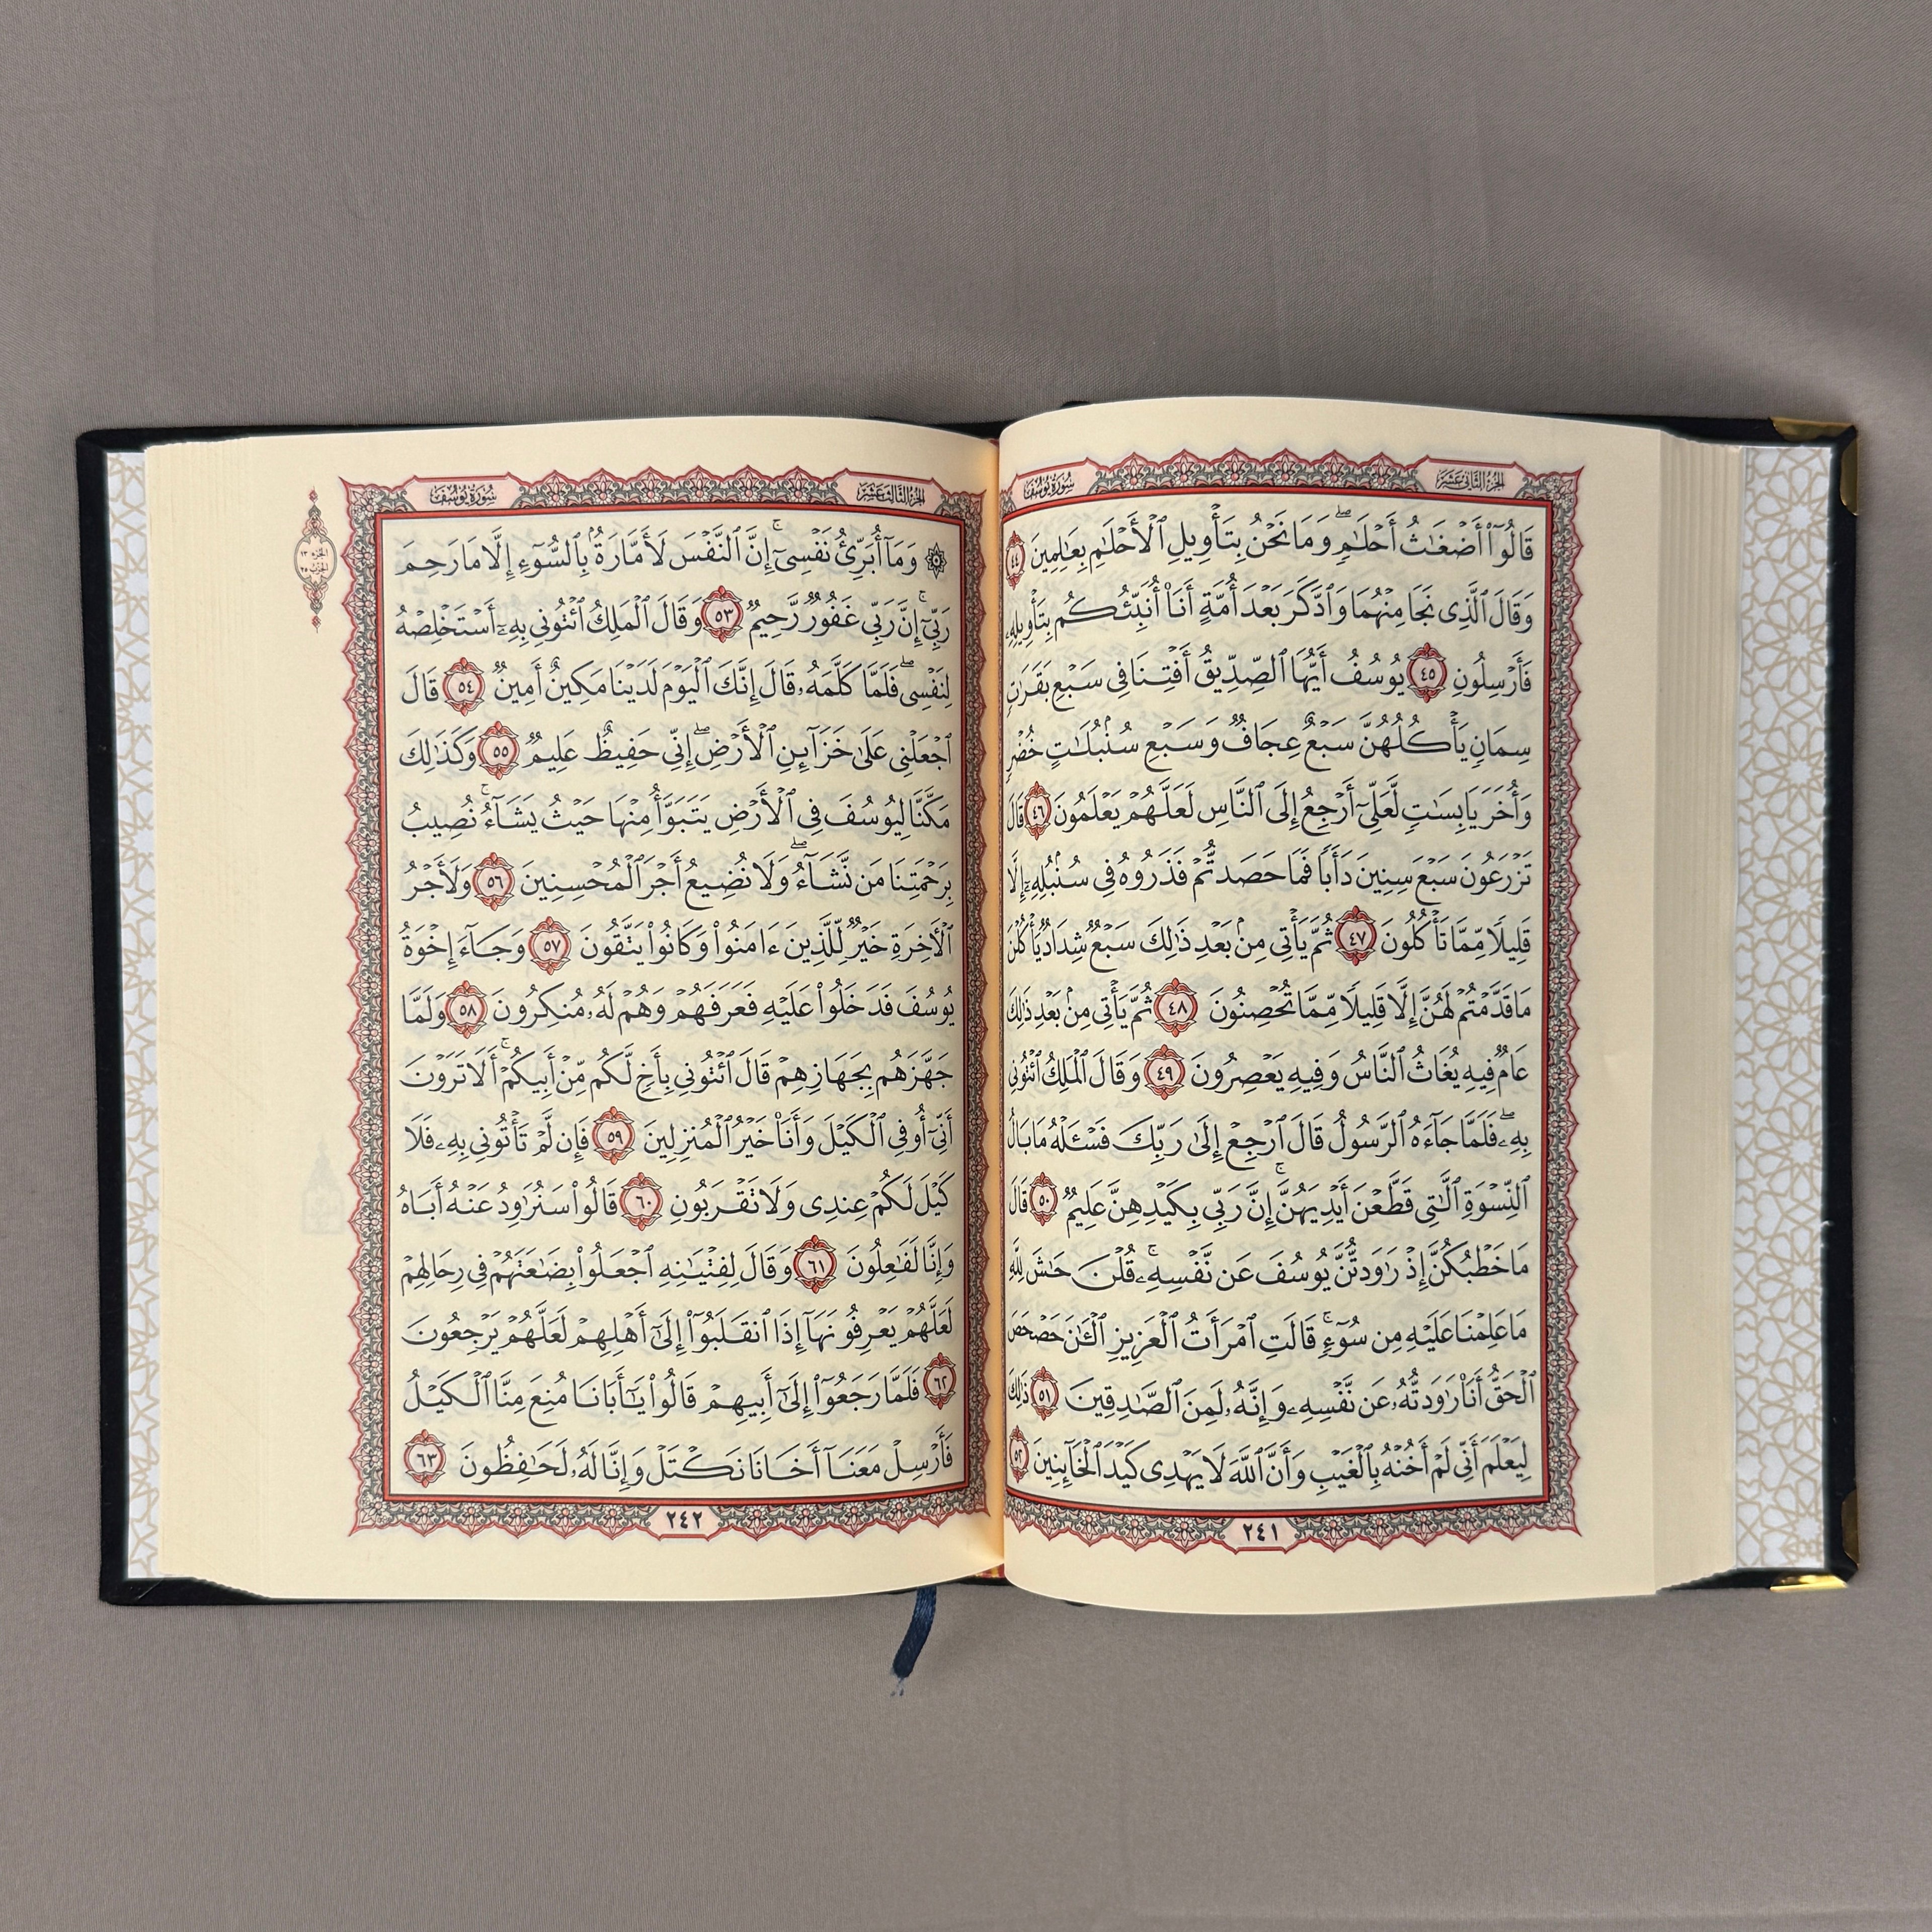 الجزء الثاني عشر
سورة يوسف
قَالُوٓا۟ أَضْغَٰثُ أَحْلَٰمٍۖ وَمَا نَحْنُ بِتَأْوِيلِ ٱلْأَحْلَٰمِ بِعَٰلِمِينَ ٤٤
وَقَالَ ٱلَّذِى نَجَا مِنْهُمَا وَٱدَّكَرَ بَعْدَ أُمَّةٍ أَنَا۠ أُنَبِّئُكُم بِتَأْوِيلِهِۦ
فَأَرْسِلُونِ ٤٥ يُوسُفُ أَيُّهَا ٱلصِّدِّيقُ أَفْتِنَا فِى سَبْعِ بَقَرَٰتٍ
سِمَانٍ يَأْكُلُهُنَّ سَبْعٌ عِجَافٌ وَسَبْعِ سُنۢبُلَٰتٍ خُضْرٍ
وَأُخَرَ يَابِسَٰتٍ لَّعَلِّىٓ أَرْجِعُ إِلَى ٱلنَّاسِ لَعَلَّهُمْ يَعْلَمُونَ ٤٦ قَالَ
تَزْرَعُونَ سَبْعَ سِنِينَ دَأَبًا فَمَا حَصَدتُّمْ فَذَرُوهُ فِى سُنۢبُلِهِۦٓ إِلَّا
قَلِيلًا مِّمَّا تَأْكُلُونَ ٤٧ ثُمَّ يَأْتِى مِنۢ بَعْدِ ذَٰلِكَ سَبْعٌ شِدَادٌ يَأْكُلْنَ
مَا قَدَّمْتُمْ لَهُنَّ إِلَّا قَلِيلًا مِّمَّا تُحْصِنُونَ ٤٨ ثُمَّ يَأْتِى مِنۢ بَعْدِ ذَٰلِكَ
عَامٌ فِيهِ يُغَاثُ ٱلنَّاسُ وَفِيهِ يَعْصِرُونَ ٤٩ وَقَالَ ٱلْمَلِكُ ٱئْتُونِى
بِهِۦۖ فَلَمَّا جَآءَهُ ٱلرَّسُولُ قَالَ ٱرْجِعْ إِلَىٰ رَبِّكَ فَسْـَٔلْهُ مَا بَالُ
ٱلنِّسْوَةِ ٱلَّٰتِى قَطَّعْنَ أَيْدِيَهُنَّۚ إِنَّ رَبِّى بِكَيْدِهِنَّ عَلِيمٌ ٥٠ قَالَ
مَا خَطْبُكُنَّ إِذْ رَٰوَدتُّنَّ يُوسُفَ عَن نَّفْسِهِۦۚ قُلْنَ حَٰشَ لِلَّهِ
مَا عَلِمْنَا عَلَيْهِ مِن سُوٓءٍۚ قَالَتِ ٱمْرَأَتُ ٱلْعَزِيزِ ٱلْـَٰٔنَ حَصْحَصَ
ٱلْحَقُّ أَنَا۠ رَٰوَدتُّهُۥ عَن نَّفْسِهِۦ وَإِنَّهُۥ لَمِنَ ٱلصَّٰدِقِينَ ٥١ ذَٰلِكَ
لِيَعْلَمَ أَنِّى لَمْ أَخُنْهُ بِٱلْغَيْبِ وَأَنَّ ٱللَّهَ لَا يَهْدِى كَيْدَ ٱلْخَآئِنِينَ ٥٢
٢٤١
الجزء الثالث عشر
سورة يوسف
الجزء ١٣
الحزب ٢٥
۞ وَمَآ أُبَرِّئُ نَفْسِىٓۚ إِنَّ ٱلنَّفْسَ لَأَمَّارَةٌۢ بِٱلسُّوٓءِ إِلَّا مَا رَحِمَ
رَبِّىٓۚ إِنَّ رَبِّى غَفُورٌ رَّحِيمٌ ٥٣ وَقَالَ ٱلْمَلِكُ ٱئْتُونِى بِهِۦٓ أَسْتَخْلِصْهُ
لِنَفْسِىۖ فَلَمَّا كَلَّمَهُۥ قَالَ إِنَّكَ ٱلْيَوْمَ لَدَيْنَا مَكِينٌ أَمِينٌ ٥٤ قَالَ
ٱجْعَلْنِى عَلَىٰ خَزَآئِنِ ٱلْأَرْضِۖ إِنِّى حَفِيظٌ عَلِيمٌ ٥٥ وَكَذَٰلِكَ
مَكَّنَّا لِيُوسُفَ فِى ٱلْأَرْضِ يَتَبَوَّأُ مِنْهَا حَيْثُ يَشَآءُۚ نُصِيبُ
بِرَحْمَتِنَا مَن نَّشَآءُۖ وَلَا نُضِيعُ أَجْرَ ٱلْمُحْسِنِينَ ٥٦ وَلَأَجْرُ
ٱلْـَٔاخِرَةِ خَيْرٌ لِّلَّذِينَ ءَامَنُوا۟ وَكَانُوا۟ يَتَّقُونَ ٥٧ وَجَآءَ إِخْوَةُ
يُوسُفَ فَدَخَلُوا۟ عَلَيْهِ فَعَرَفَهُمْ وَهُمْ لَهُۥ مُنكِرُونَ ٥٨ وَلَمَّا
جَهَّزَهُم بِجَهَازِهِمْ قَالَ ٱئْتُونِى بِأَخٍ لَّكُم مِّنْ أَبِيكُمْۚ أَلَا تَرَوْنَ
أَنِّىٓ أُوفِى ٱلْكَيْلَ وَأَنَا۠ خَيْرُ ٱلْمُنزِلِينَ ٥٩ فَإِن لَّمْ تَأْتُونِى بِهِۦ فَلَا
كَيْلَ لَكُمْ عِندِى وَلَا تَقْرَبُونِ ٦٠ قَالُوا۟ سَنُرَٰوِدُ عَنْهُ أَبَاهُ
وَإِنَّا لَفَٰعِلُونَ ٦١ وَقَالَ لِفِتْيَٰنِهِ ٱجْعَلُوا۟ بِضَٰعَتَهُمْ فِى رِحَالِهِمْ
لَعَلَّهُمْ يَعْرِفُونَهَآ إِذَا ٱنقَلَبُوٓا۟ إِلَىٰٓ أَهْلِهِمْ لَعَلَّهُمْ يَرْجِعُونَ
٦٢ فَلَمَّا رَجَعُوٓا۟ إِلَىٰٓ أَبِيهِمْ قَالُوا۟ يَٰٓأَبَانَا مُنِعَ مِنَّا ٱلْكَيْلُ
فَأَرْسِلْ مَعَنَآ أَخَانَا نَكْتَلْ وَإِنَّا لَهُۥ لَحَٰفِظُونَ ٦٣
٢٤٢